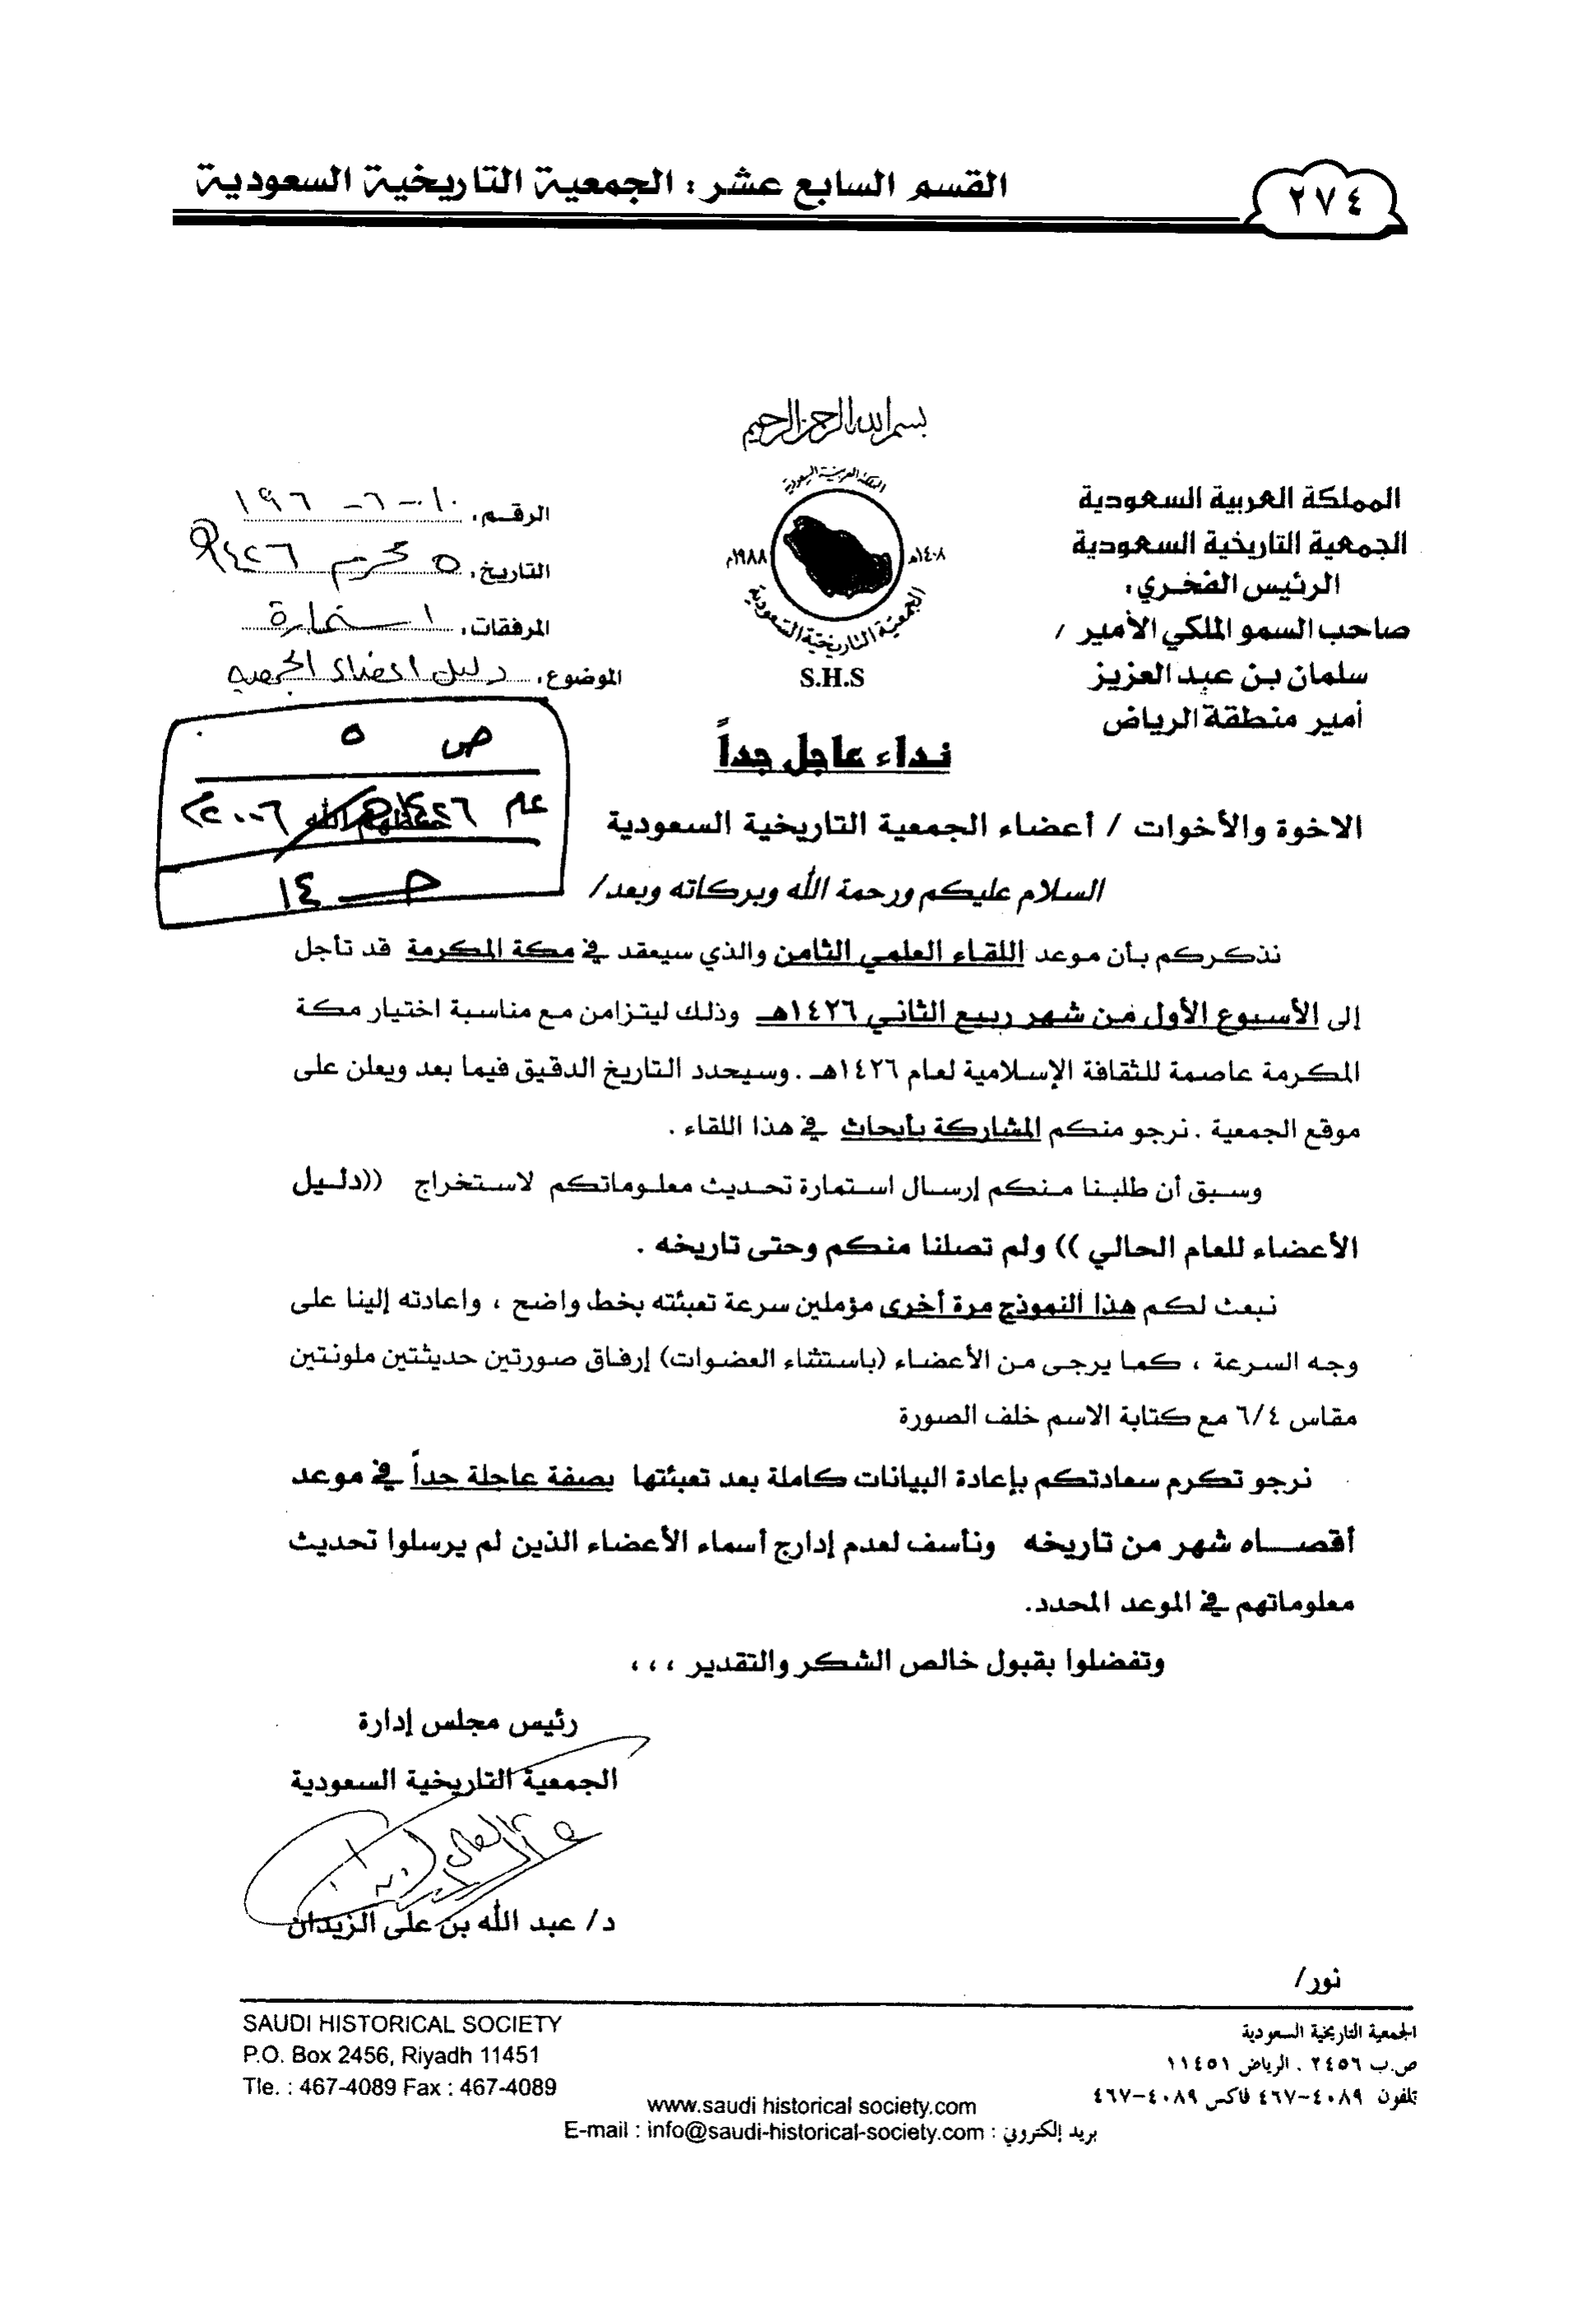 القسم السابع عشر : الجمعية التاريخية السعودية
٢٧٤
بسم الله الرحمن الرحيم
المملكة العربية السعودية
الجمعية التاريخية السعودية
الرئيس الفخري:
صاحب السمو الملكي الأمير /
سلمان بن عبد العزيز
أمير منطقة الرياض
المملكة العربية السعودية
١٤٠٨هـ
١٩٨٨م
الجمعية التاريخية السعودية
S.H.S
الرقم:
التاريخ: ٥ محرم ١٤٢٦هـ
المرفقات: استمارة
الموضوع: دليل اعضاء الجمعية
ص ٥
عام ١٤٢٦ ٢٠٠٦م
حـ ١٤
نداء عاجل جداً
الاخوة والأخوات / أعضاء الجمعية التاريخية السعودية حفظهم الله
السلام عليكم ورحمة الله وبركاته وبعد/
نذكركم بأن موعد اللقاء العلمي الثامن والذي سيعقد في مكة المكرمة قد تأجل
إلى الأسبوع الأول من شهر ربيع الثاني ١٤٢٦هـ وذلك ليتزامن مع مناسبة اختيار مكة
المكرمة عاصمة للثقافة الإسلامية لعام ١٤٢٦هـ . وسيحدد التاريخ الدقيق فيما بعد ويعلن على
موقع الجمعية . نرجو منكم المشاركة بأبحاث في هذا اللقاء .
وسبق أن طلبنا منكم إرسال استمارة تحديث معلوماتكم لاستخراج ((دليل
الأعضاء للعام الحالي )) ولم تصلنا منكم وحتى تاريخه .
نبعث لكم هذا النموذج مرة أخرى مؤملين سرعة تعبئته بخط واضح ، واعادته إلينا على
وجه السرعة ، كما يرجى من الأعضاء (باستثناء العضوات) إرفاق صورتين حديثتين ملونتين
مقاس ٦/٤ مع كتابة الاسم خلف الصورة
نرجو تكرم سعادتكم بإعادة البيانات كاملة بعد تعبئتها بصفة عاجلة جداً في موعد
أقصــاه شهر من تاريخه ونأسف لعدم إدارج أسماء الأعضاء الذين لم يرسلوا تحديث
معلوماتهم في الموعد المحدد.
وتفضلوا بقبول خالص الشكر والتقدير ،،،
رئيس مجلس إدارة
الجمعية التاريخية السعودية
د/ عبد الله بن على الزيدان
نور/
SAUDI HISTORICAL SOCIETY
P.O. Box 2456, Riyadh 11451
Tle. : 467-4089 Fax : 467-4089
الجمعية التاريخية السعودية
ص.ب ٢٤٥٦ . الرياض ١١٤٥١
تلفون ٤٠٨٩-٤٦٧ فاكس ٤٠٨٩-٤٦٧
www.saudi historical society.com
E-mail : info@saudi-historical-society.com : بريد إلكتروني